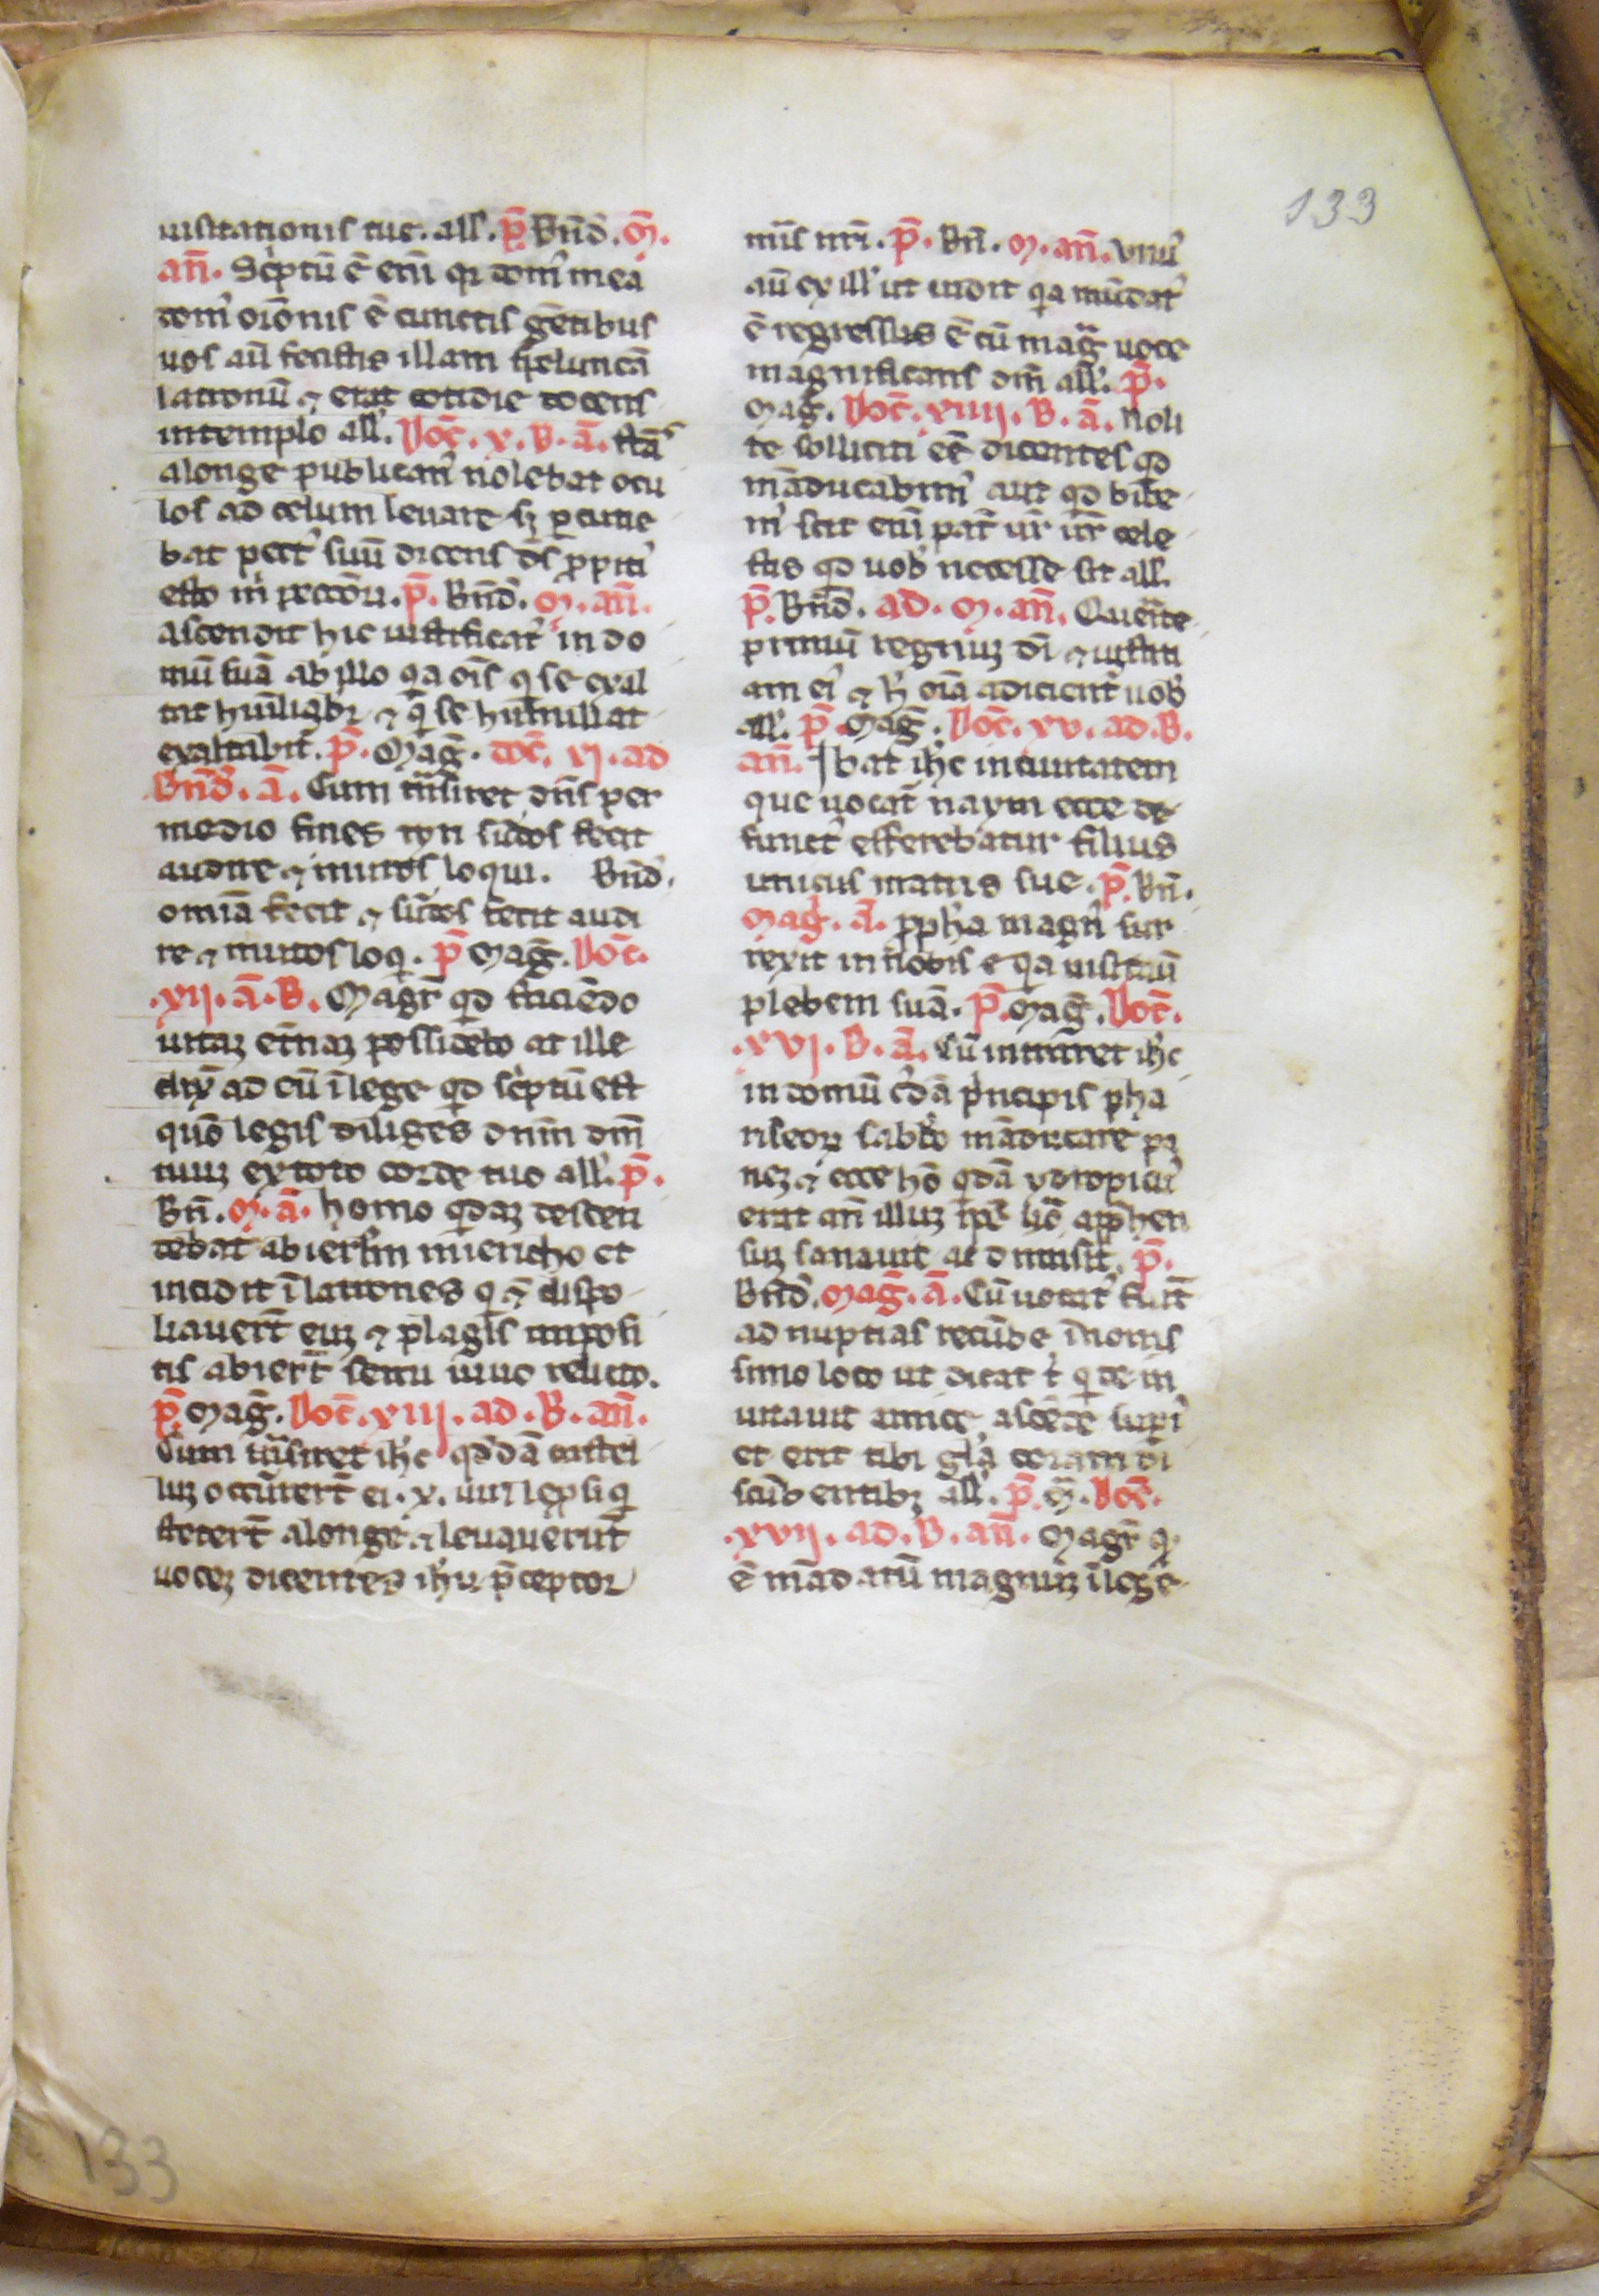 133
uisitationis tue. all'. p̄. Bn̄d'. m̄.
an̄. Sc'ptū ē eni qi dom' mea
dom' orōnis ē cunctis gētibus
uos aū fecistis illam speluncā
latronū ⁊ erat cotidie docens
in templo all'. Doc̄. x. B. ā. stās
alonge publican' nolebat ocu
los ad celum leuare sꝫ ꝑcucie
bat pect' suū dicens ds̄ ꝓpiti'
esto m' peccōri. p̄. Bn̄d'. m. an̄.
ascendit hic iustificat' in do
mū suā ab illo qa oīs q se exal
tat humiliabit ⁊ q se humiliat
exaltabit'. p̄. Maḡ. doc̄. xj. ad
Bn̄d'. ā. Cum tnsiret dn̄s per
medio fines tyri surdos fecit
audire ⁊ mutos loqui. Bn̄d'.
omnia fecit ⁊ surdos fecit audi
re ⁊ mutos loq. p̄ Maḡ. Doc̄.
.xij. ā. B. Magr̄ qd faciēdo
uitaꝫ et̄naꝫ possidebo at ille
dix̄ ad eū ī lege qd sc'ptū est
quō legis diliges dn̄m dm̄
tuuꝫ ex toto corde tuo all'. p̄.
Bn̄. m. ā. homo qdaꝫ descen
debat abierl'm in iericho et
incidit ī latrones q ⁊ dispo
liauert̄ euꝫ ⁊ plagis imposi
tis abiert̄ semi uiuo relicto.
p̄ Maḡ. Doc̄. xiij. ad. B. an̄.
Cum tnsiret ih'c qddā castel
luꝫ occurrert̄ ei. x. uiri lep̄si q
stetert̄ alonge ⁊ leuauerūt
uoceꝫ dicentes ih'u p̄ceptor
mis nr̄i. p̄. Bn̄. m. an̄. Vnu'
aū ex ill' ut uidit qa mūdat'
ē regressus ē cū mag uoce
magnificans dm̄ all'. p̄.
Maḡ. Doc̄. xiiij. B. ā. Noli
te solliciti eē dicentes qd
māducabim' aut qd bibe
m' scit eni pat̄ ur̄ cele
stis qd uob' necesse sit all'.
p̄. Bn̄d'. ad. m. an̄. Querite
primū regnuꝫ di ⁊ iustiti
am ei' ⁊ h' oīa adicient' uob'
all'. p̄. Maḡ. Doc̄. xv. ad. B.
an̄. Ibat ih'c in ciuitatem
que uocat' naym ecce de
funct' efferebatur filius
unicus matris sue. p̄. Bn̄.
Maḡ. ā. ꝓph'a magn' sur
rexit in nobis ⁊ qa uisitauit
plebem suā. p̄. Maḡ. Doc̄.
.xvj. B. ā. Cū intraret ih'c
in domū c'dā p'ncipis pha
riseoꝝ sabb'o māducare pa
neꝫ ⁊ ecce hō qdā ydropicu'
erat an̄ illuꝫ ip̄e u'o app̄hen
suꝫ sanauit ac dimisit. p̄.
Bn̄d'. Maḡ. ā. Cū uocat' fuit̄
ad nuptias recūbe ī nouis
simo loco ut dicat t' q te in
uitauit amice ascēde supi'
et erit tibi gl'a coram di
scūbentibꝫ all'. p̄. m̄. Doc̄.
.xvij. ad. B. an̄. Magr̄ q
ē mādatū magnuꝫ ī lege
133